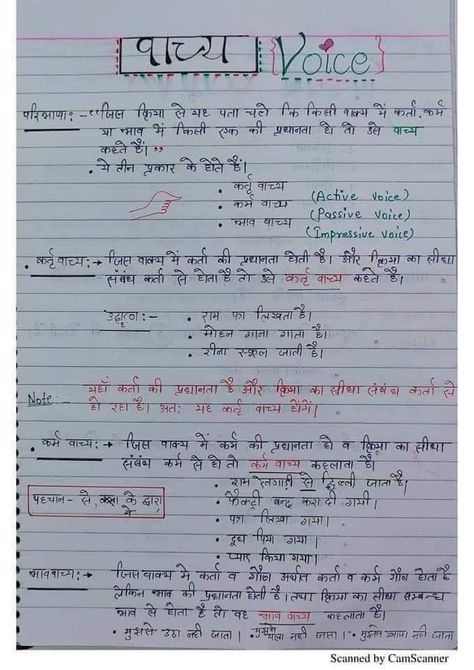 वाच्य {Voice}
परिभाषा:- "जिस क्रिया से यह पता चले कि किसी वाक्य में कर्ता, कर्म
या भाव में किसी एक की प्रधानता हो तो उसे वाच्य
कहते हैं।"
• ये तीन प्रकार के होते हैं।
• कर्तृ वाच्य (Active voice)
• कर्म वाच्य (Passive voice)
• भाव वाच्य (Impressive voice)
• कर्तृ वाच्य:→ जिस वाक्य में कर्ता की प्रधानता होती है। और क्रिया का सीधा
संबंध कर्ता से होता है तो उसे कर्तृ वाच्य कहते हैं।
:- • राम पत्र लिखता है।
• मोहन गाना गाता है।
• रीना स्कूल जाती है।
Note:- यहाँ कर्ता की प्रधानता है और क्रिया का सीधा संबंध कर्ता से
हो रहा है। अतः यह कर्तृ वाच्य होंगे।
• कर्म वाच्य:→ जिस वाक्य में कर्म की प्रधानता हो व क्रिया का सीधा
संबंध कर्म से हो तो कर्म वाच्य कहलाता है।
• राम रेलगाड़ी से दिल्ली जाता है।
पहचान- से, के द्वारा
• फैक्ट्री बन्द करा दी गयी।
• पत्र लिखा गया।
• दूध पिया गया।
• प्यार किया गया।
भाववाच्य:→ जिस वाक्य में कर्ता व गौण अर्थात कर्ता व कर्म गौण होता है
लेकिन भाव की प्रधानता होती है। तथा क्रिया का सीधा सम्बन्ध
भाव से होता है तो वह भाव वाच्य कहलाता है।
• मुझसे उठा नहीं जाता। • मुझसे चला नहीं जाता। • मुझसे खाया नहीं जाता
Scanned by CamScanner